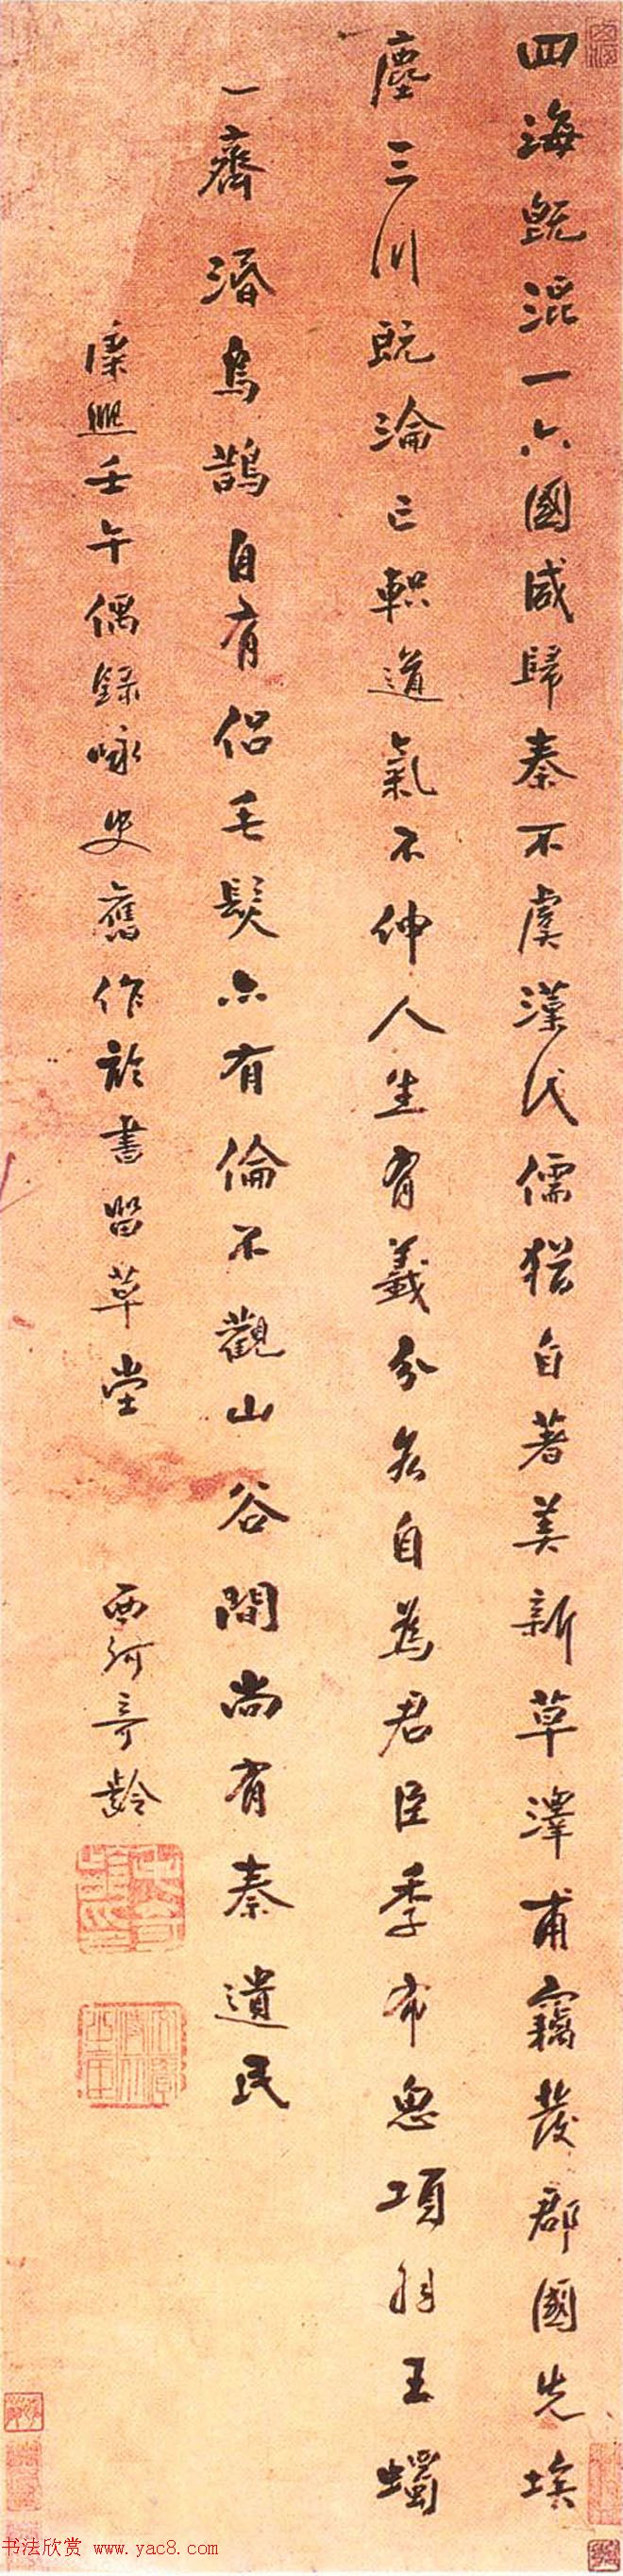 四海既混一六國咸歸秦不虞漢代儒猶自著美新草澤甫竊發郡國先埃
塵三川既淪亡軹道氣不伸人生有義分各自為君臣季布忠項羽王蠋
一齊湣烏鵲自有侶毛髮亦有倫不觀山谷間尚有秦遺民
康熙壬午偶錄咏史舊作於書留草堂
西河奇齡
书法欣赏 www.yac8.com